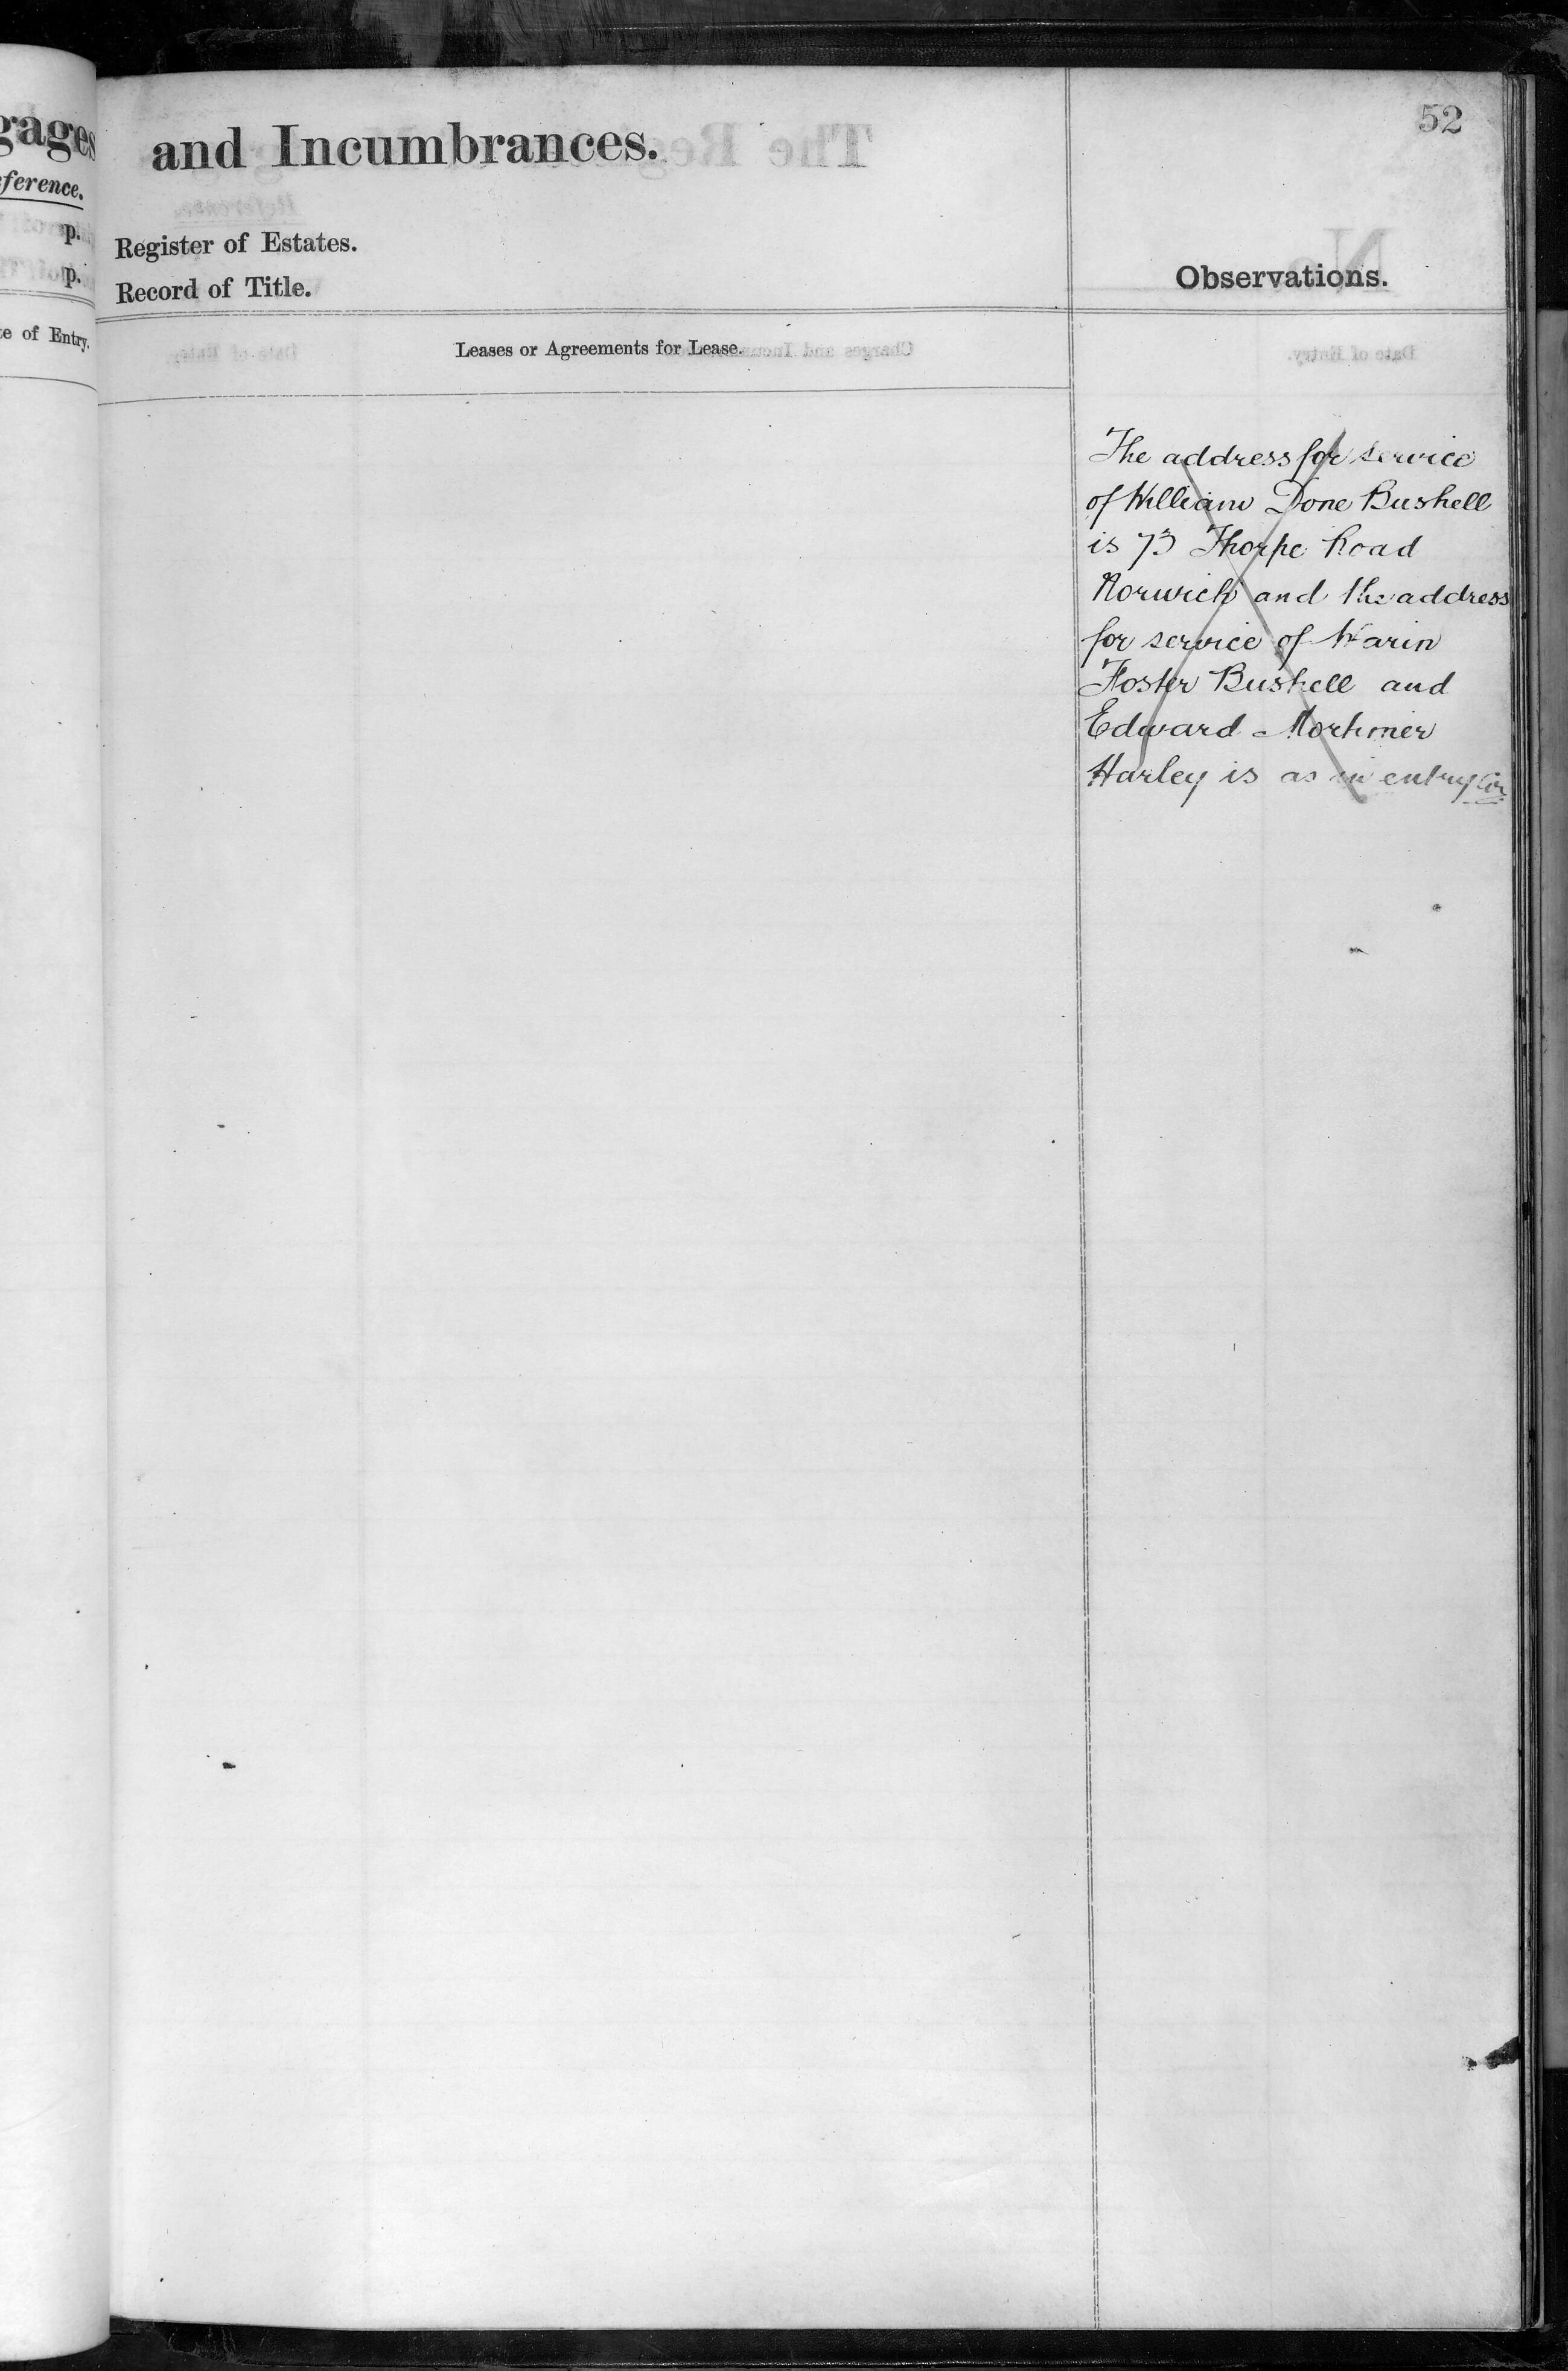 gages
ference.
p.
p.
te of Entry.
52
and Incumbrances.
Register of Estates.
Record of Title.
Observations.
Leases or Agreements for Lease.
The address for service
of William Done Bushell
is 73 Thorpe Road
Norwich and the address
for service of Warin
Foster Bushell and
Edward Mortimer
Harley is as in entry